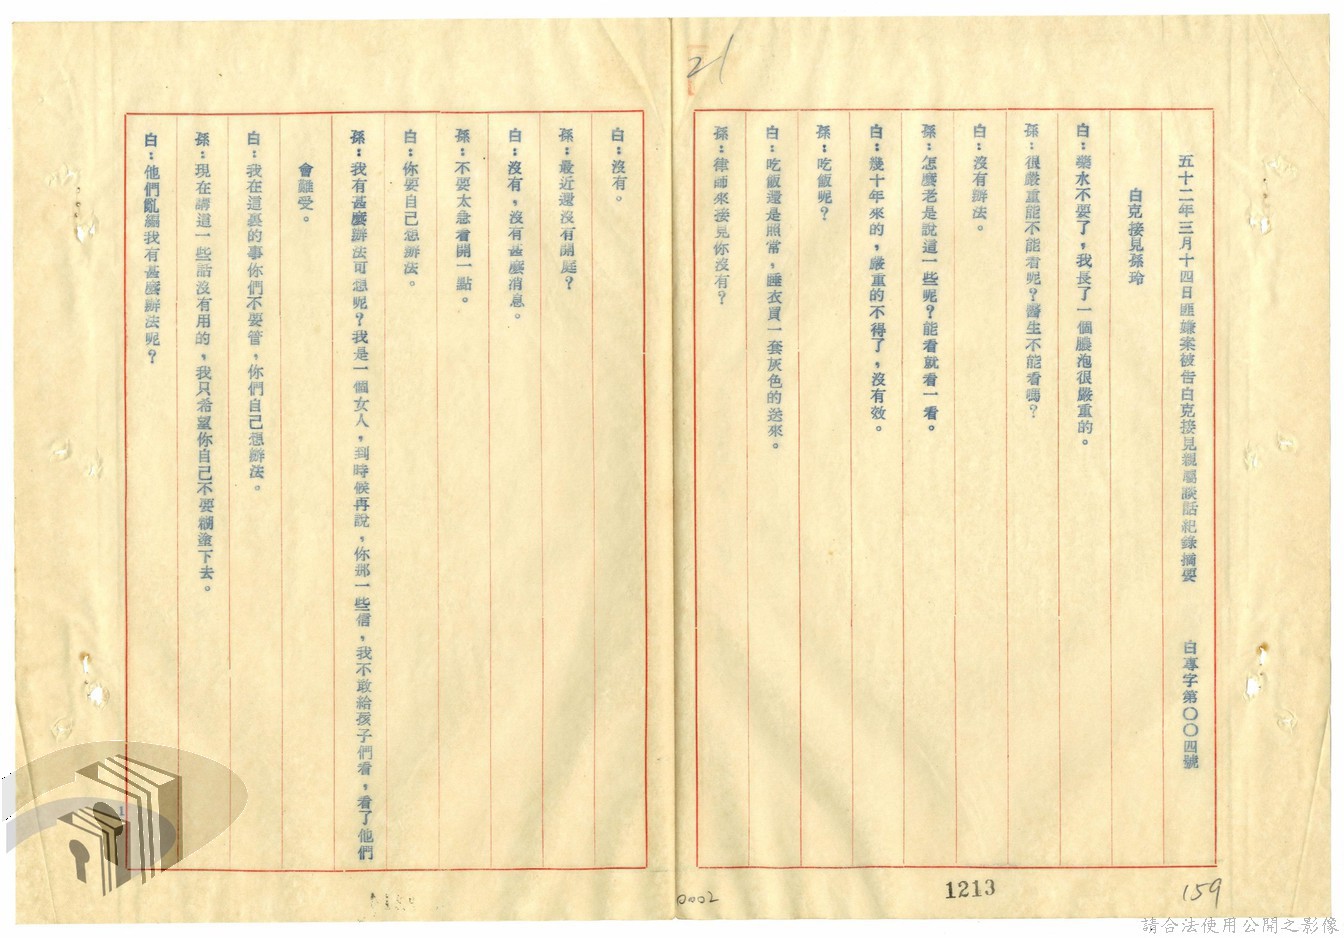 21
五十二年三月十四日匪嫌案被告白克接見親屬談話紀錄摘要　　白專字第〇〇四號
白克接見孫玲
白：藥水不要了，我長了一個膿泡很嚴重的。
孫：很嚴重能不能看呢？醫生不能看嗎？
白：沒有辦法。
孫：怎麼老是說這一些呢？能看就看一看。
白：幾十年來的，嚴重的不得了，沒有效。
孫：吃飯呢？
白：吃飯還是照常，睡衣買一套灰色的送來。
孫：律師來接見你沒有？
白：沒有。
孫：最近還沒有開庭？
白：沒有，沒有甚麼消息。
孫：不要太急看開一點。
白：你要自己想辦法。
孫：我有甚麼辦法可想呢？我是一個女人，到時候再說，你那一些信，我不敢給孩子們看，看了他們
會難受。
白：我在這裏的事你們不要管，你們自己想辦法。
孫：現在講這一些話沒有用的，我只希望你自己不要糊塗下去。
白：他們亂編我有甚麼辦法呢？
1
0002
1213
159
請合法使用公開之影像